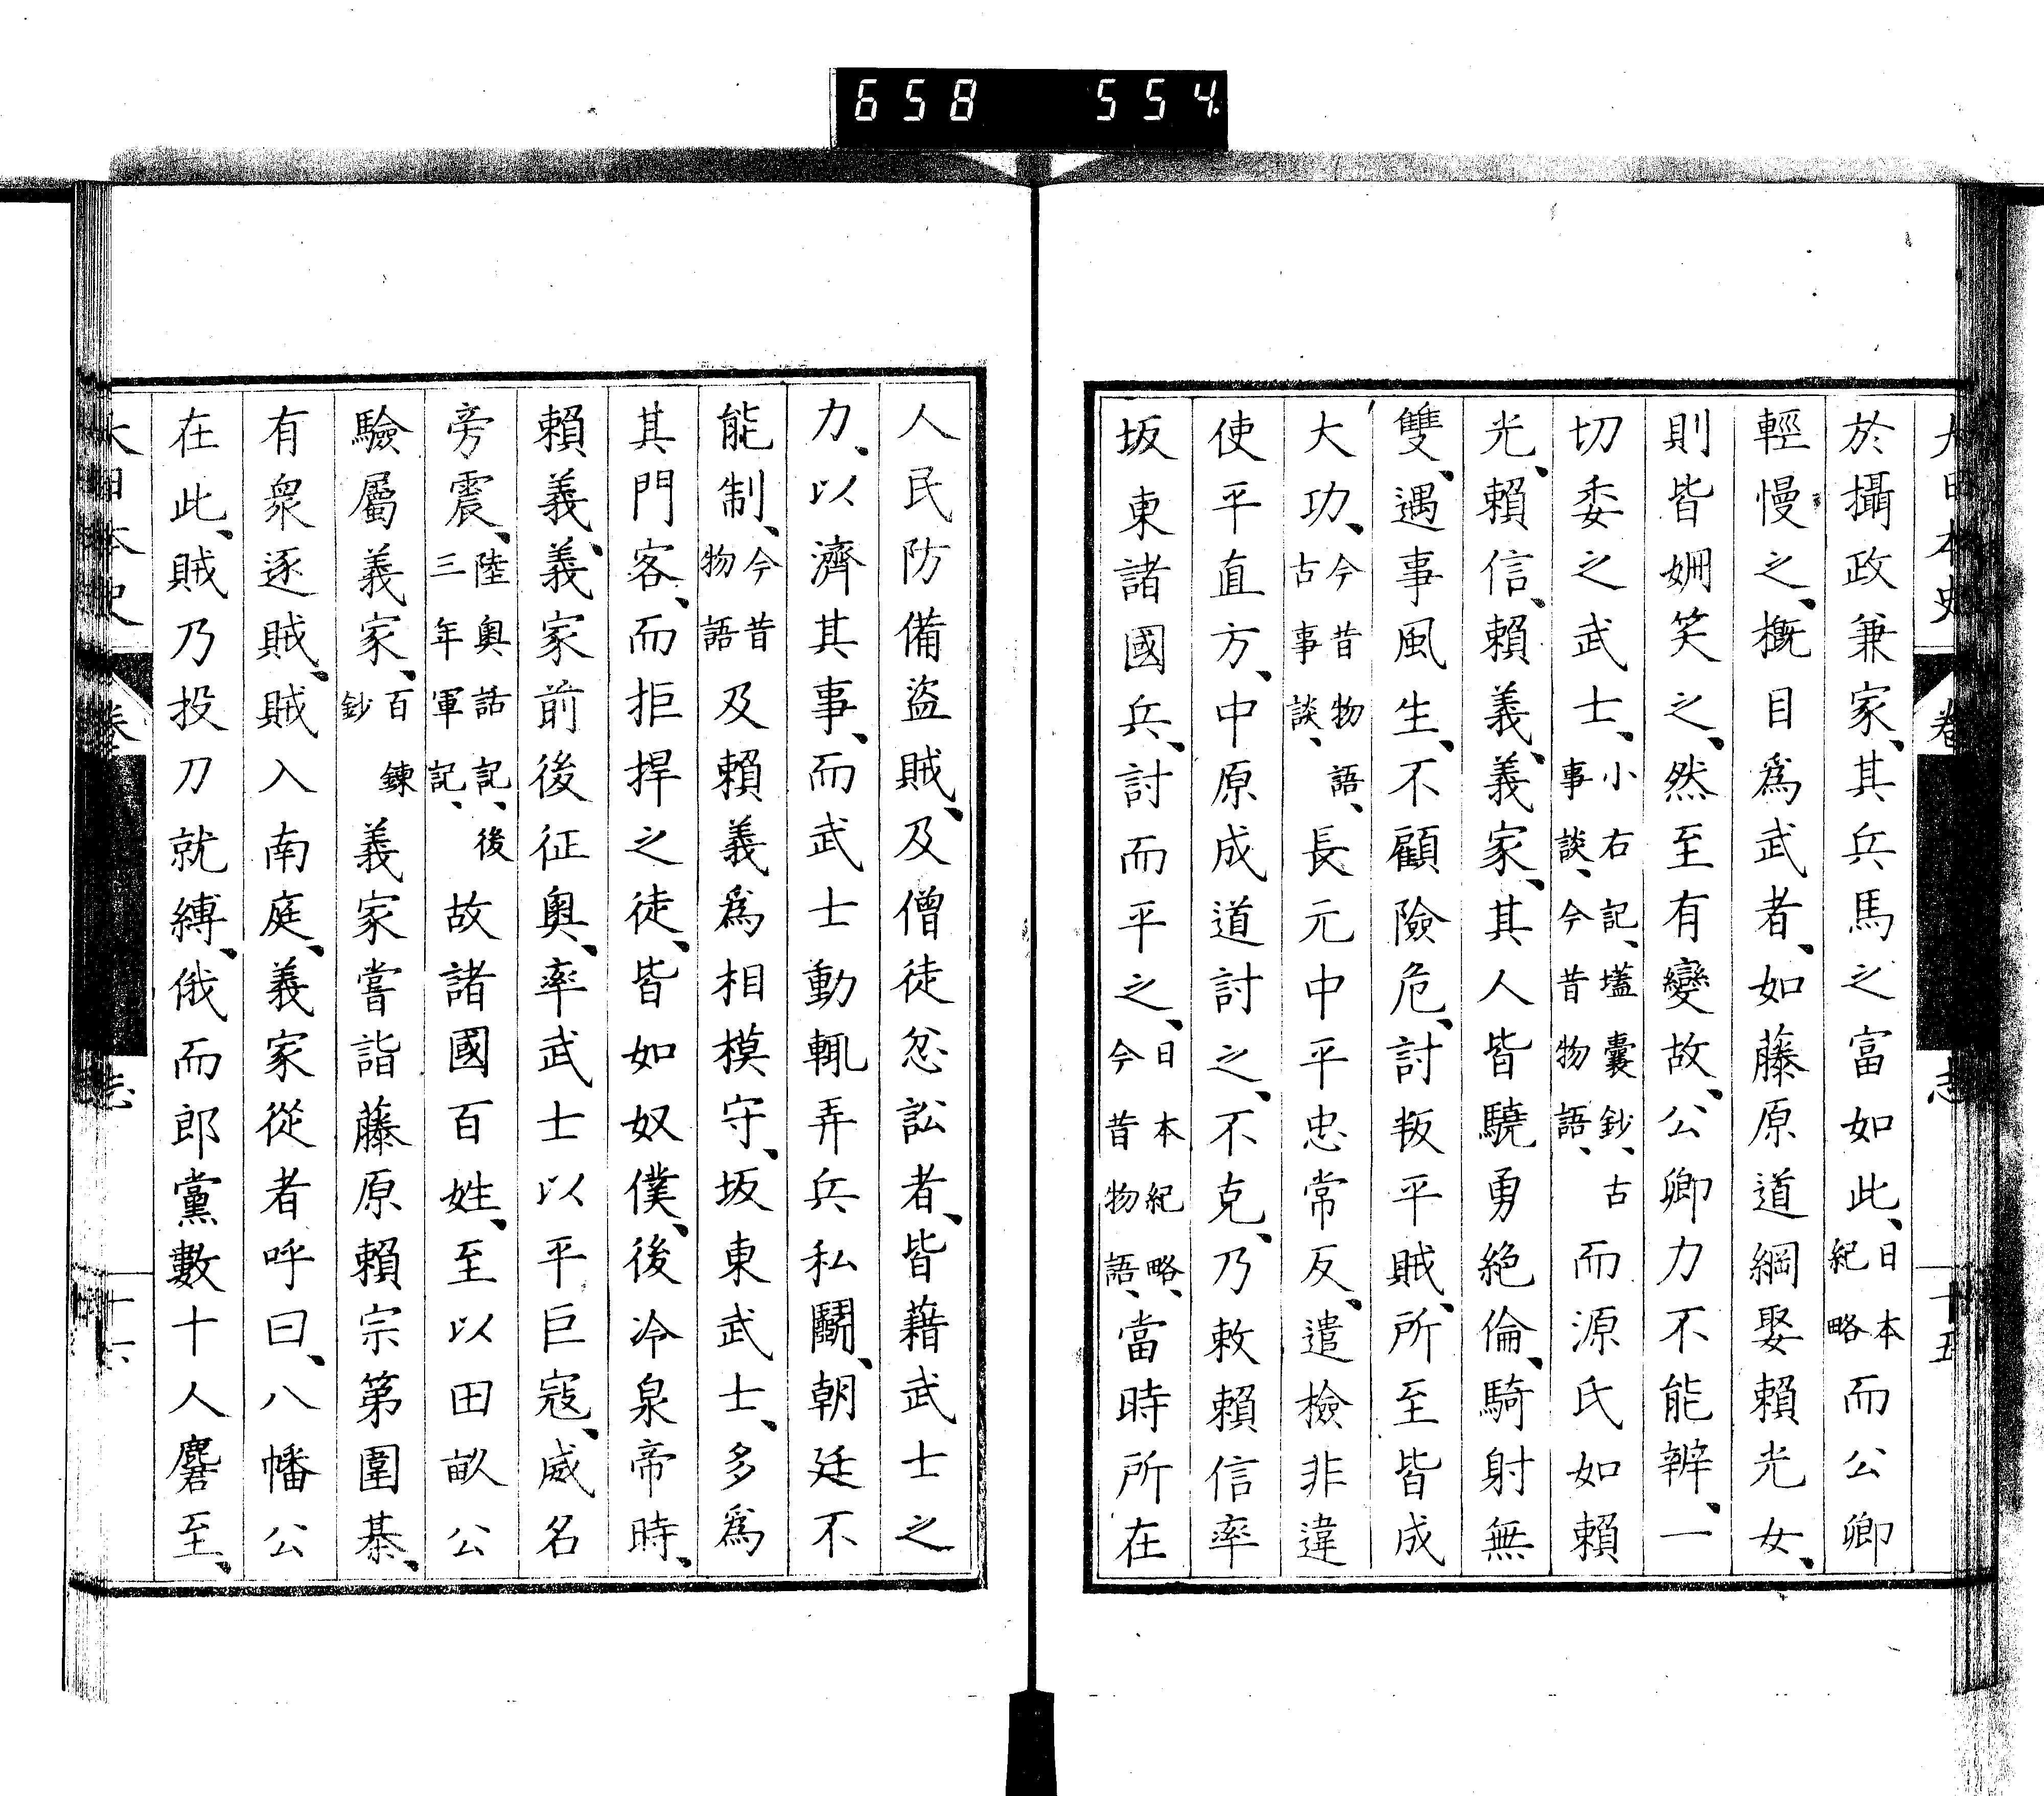 658 554
大日本史 卷 志 十五
於攝政兼家、其兵馬之富如此、日本紀略而公卿
輕慢之、概目爲武者、如藤原道綱娶賴光女、
則皆姍笑之、然至有變故、公卿力不能辨、一
切委之武士、小右記、壒囊鈔、古事談、今昔物語、而源氏如賴
光、賴信、賴義、義家、其人皆驍勇絕倫、騎射無
雙、遇事風生、不顧險危、討叛平賊、所至皆成
大功、今昔物語、古事談、長元中平忠常反、遣檢非違
使平直方、中原成道討之、不克、乃敕賴信率
坂東諸國兵、討而平之、日本紀略、今昔物語、當時所在
人民防備盜賊、及僧徒忿訟者、皆藉武士之
力、以濟其事、而武士動輒弄兵私鬭、朝廷不
能制、今昔物語及賴義爲相模守、坂東武士、多爲
其門客、而拒捍之徒、皆如奴僕、後冷泉帝時、
賴義、義家前後征奧、率武士以平巨寇、威名
旁震、陸奧話記、後三年軍記、故諸國百姓、至以田畝公
驗屬義家、百鍊鈔義家嘗詣藤原賴宗第圍棊、
有衆逐賊、賊入南庭、義家從者呼曰、八幡公
在此、賊乃投刀就縛、俄而郎黨數十人麕至、
大日本史 卷 志 十六